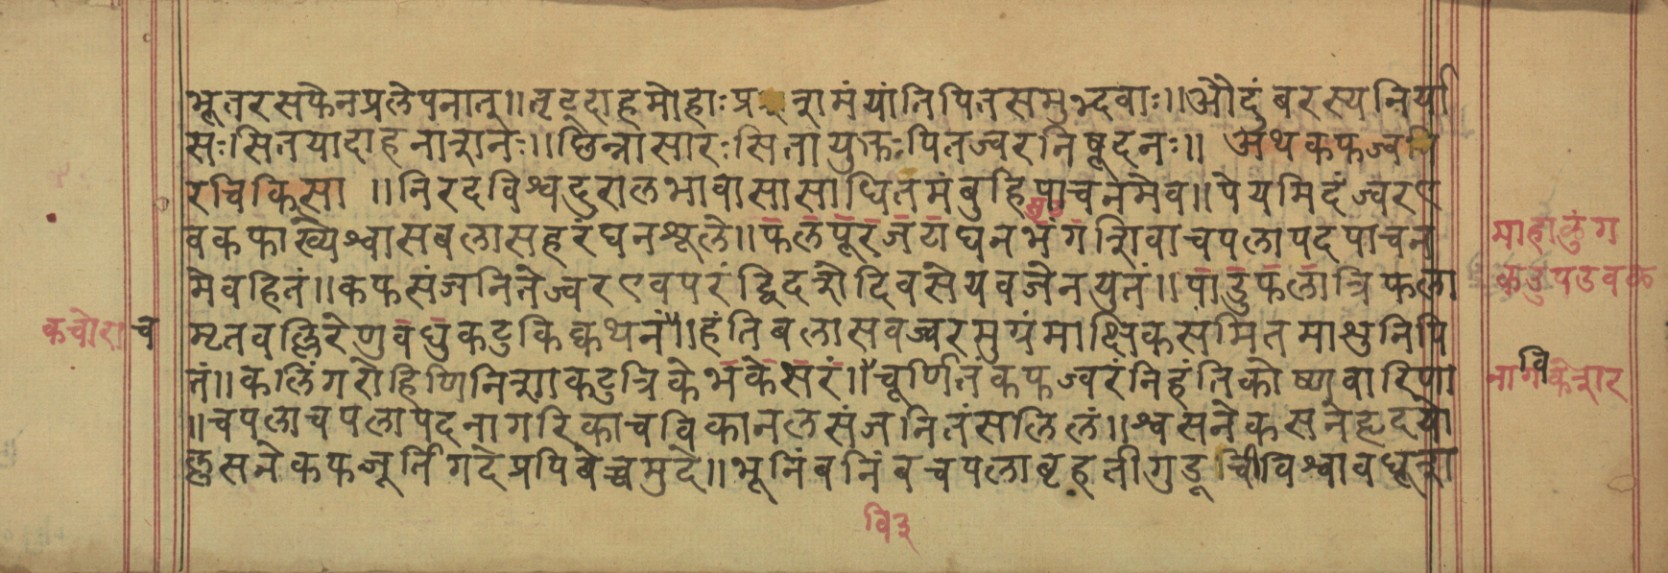 भूतरसफेनप्रलेपनात्॥तृट्दाहमोहाःप्र शमंयांतिपित्तसमुद्भवाः॥औदुंबरस्यनिर्या
सःसितयादाहनाशनः॥छिन्नासारःसितायुक्तःपित्तज्वरनिषूदनः॥ अथकफज्व
रचिकित्सा ॥निरदविश्वदुरालभावासासाधितमंबुहिपाचनमेव॥पेयमिदंज्वरए
वकफाख्येश्वासबलासहरंघनशूले॥फलपूरजटाघनभंगशिवाचपलापदपाचन
मेवहितं॥कफसंजनितेज्वरएवपरंद्विदशेदिवसेयवजेनयुतं॥पाडुफलात्रिफला
मृतवल्लिरेणुवधुकटुकिक्वथनं॥हंतिबलासवज्वरमुग्रंमाक्षिकसंमितमाशुनिपि
तं॥कलिंगरोहिणिनिशाकटुत्रिकेभकेसरं॥चूर्णितंकफज्वरंनिहंतिकोष्णवारिणा
॥चपलाचपलापदनागरिकाचविकानलसंजनितंसलिलं॥श्वसनेकसनेहृदयो
ल्लसनेकफजूर्तिगदेप्रपिबेच्चमुदे॥भूनिंबनिंबचपलाबृहतीगुडूचीविश्वावधूशा
माहालुंग
कडुपडवळ
नागकेशर
वि
कचोरा
च
वि३